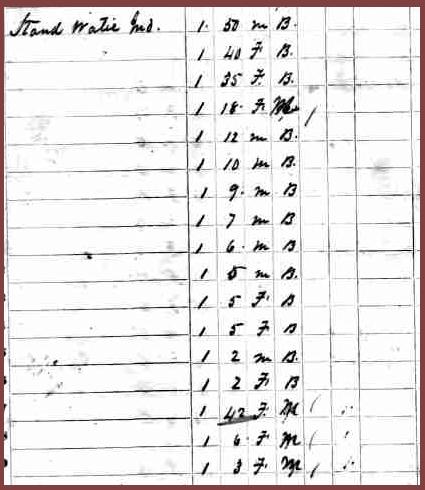 Stand Watie Ind. 1 50 m B.
1 40 F B.
1 35 F. B.
1 18 F. M
1 12 m B.
1 10 m B.
1 9. m B
1 7 m B
1 6. m B
1 5 m B.
1 5 F. B
1 5 F B
1 2 m B.
1 2 F. B
1 42 F. M
1 6. F M
1 3 F. M